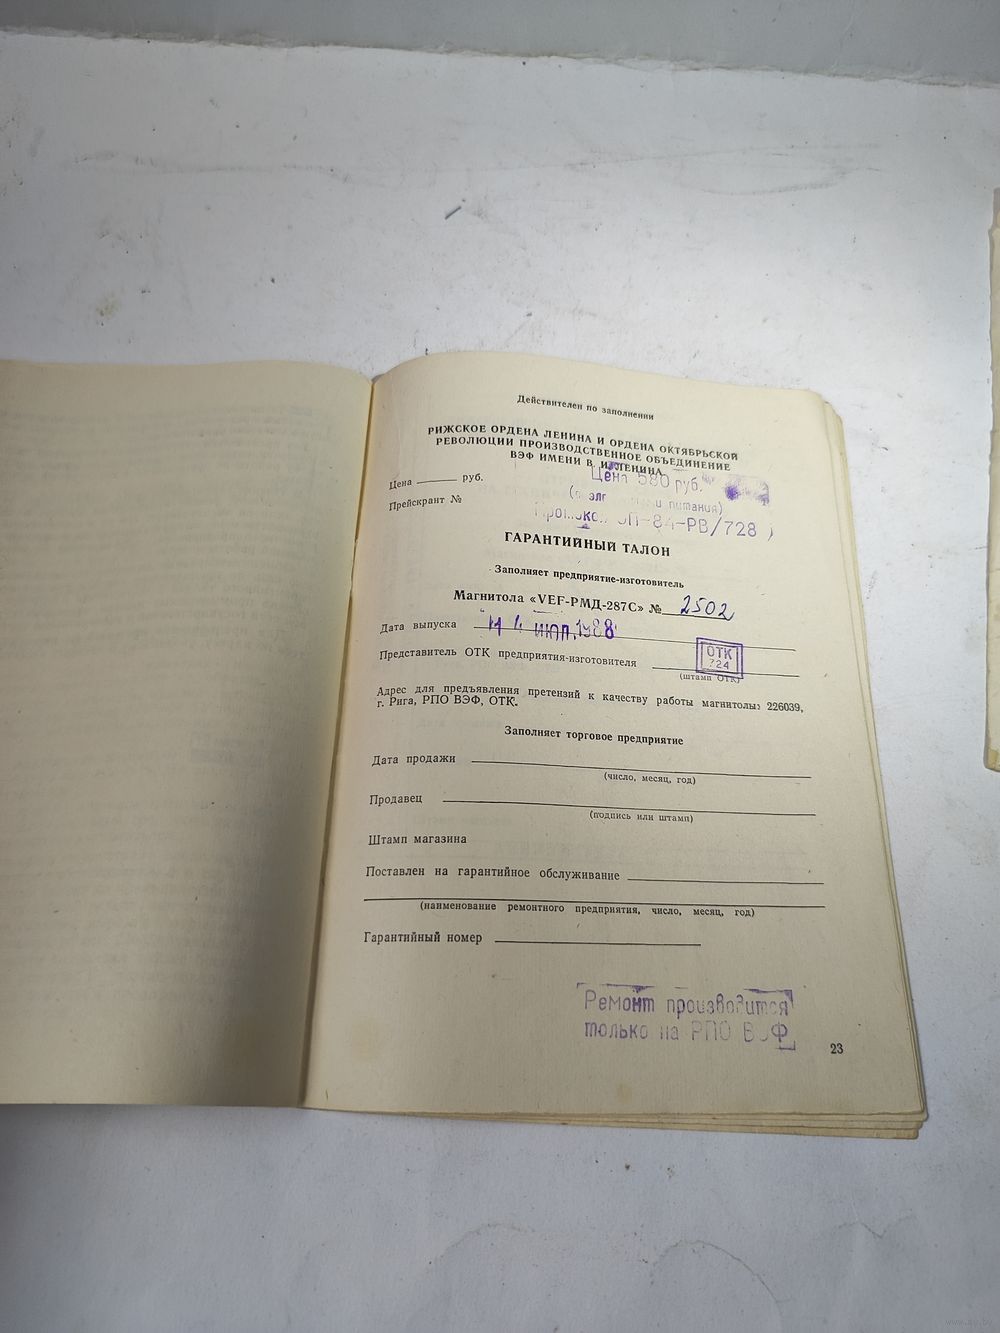 Действителен по заполнении
РИЖСКОЕ ОРДЕНА ЛЕНИНА И ОРДЕНА ОКТЯБРЬСКОЙ
РЕВОЛЮЦИИ ПРОИЗВОДСТВЕННОЕ ОБЪЕДИНЕНИЕ
ВЭФ ИМЕНИ В. И. ЛЕНИНА
Цена руб.
Цена 580 руб.
Прейскурант №
питания)
-84-РВ/728
ГАРАНТИЙНЫЙ ТАЛОН
Заполняет предприятие-изготовитель
Магнитола «VEF-РМД-287С» № 2502
Дата выпуска 14 ИЮЛ 1988
Представитель ОТК предприятия-изготовителя
ОТК
724
(штамп ОТК)
Адрес для предъявления претензий к качеству работы магнитолы: 226039,
г. Рига, РПО ВЭФ, ОТК.
Заполняет торговое предприятие
Дата продажи
(число, месяц, год)
Продавец
(подпись или штамп)
Штамп магазина
Поставлен на гарантийное обслуживание
(наименование ремонтного предприятия, число, месяц, год)
Гарантийный номер
Ремонт производится
только на РПО ВЭФ
23